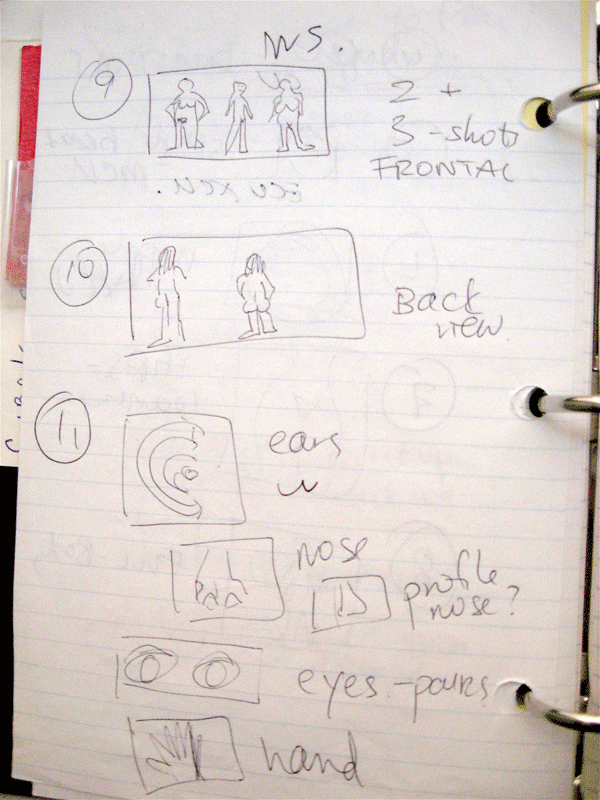 WS.
9
2 +
3 - shots
FRONTAL
ECU XCU.
10
Back
view
11
ears
nose
profile
nose?
eyes - pairs
hand